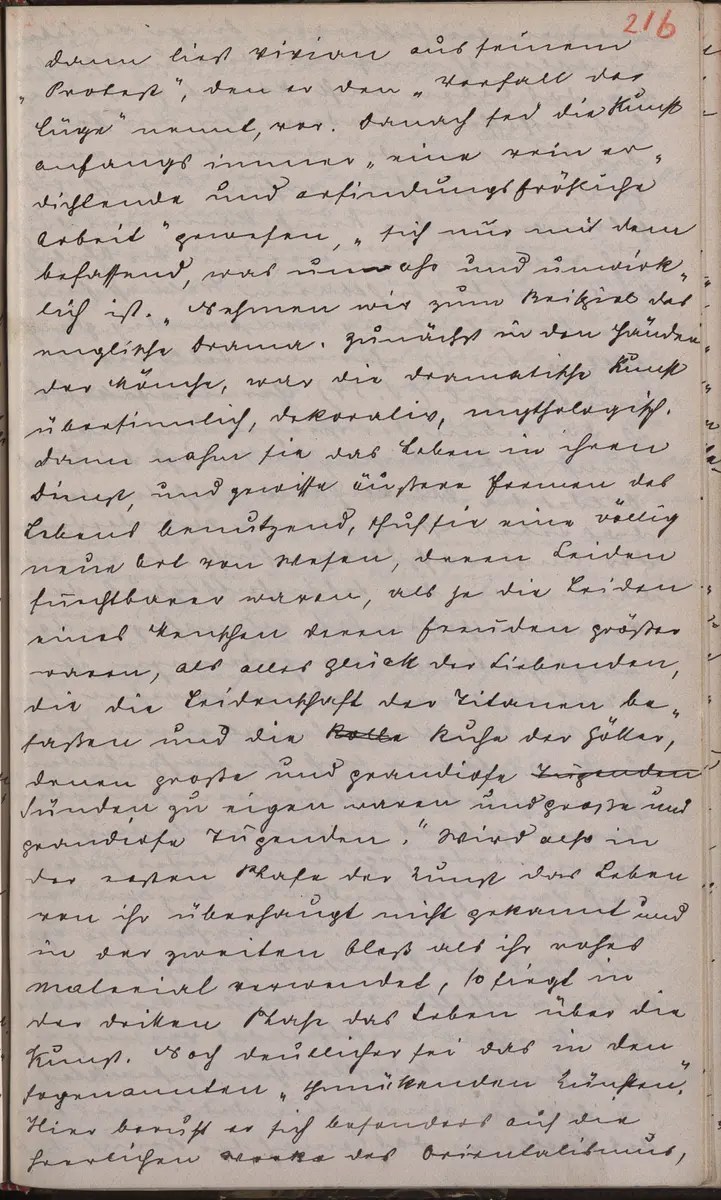 216
dann liest Vivian aus seinem
„Protest", den er den „Verfall der
Lüge" nennt, vor. Danach sei die Kunst
anfangs immer „eine rein er„
dichtende und erfindungsfröhliche
Arbeit" gewesen, „sich nur mit dem
befassend, was unwahr und unwirk„
lich ist. „Nehmen wir zum Beispiel das
englische Drama. Zunächst in den Händen
der Mönche, war die dramatische Kunst
übersinnlich, dekorativ, mythologisch.
Dann nahm sie das Leben in ihren
Dienst, und gewisse äußere Formen des
Lebens benutzend, schuf sie eine völlig
neue Art von Wesen, deren Leiden
furchtbarer waren, als je die Leiden
eines Menschen deren Freuden größer
waren, als alles Glück der Liebenden,
die die Leidenschaft der Titanen be„
saßen und die Rolle Ruhe der Götter,
denen große und grandiose Tugenden
Sünden zu eigen waren und große und
grandiose Tugenden." Wird also in
der ersten Phase der Kunst das Leben
von ihr überhaupt nicht gekannt und
in der zweiten bloß als ihr rohes
Material verwendet, so siegt in
der dritten Phase das Leben über die
Kunst. Noch deutlicher sei das in den
sogenannten „schmückenden Künsten."
Hier beruft er sich besonders auf die
herrlichen Werke des Orientalismus,